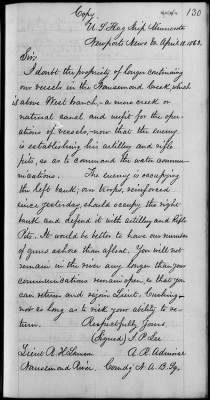 Copy
130
U. S. Flag Ship Minnesota
Newports News Va April 18. 1863.
Sir:
I doubt the propriety of longer continuing
our vessels in the Nansemond Creek, which
is above West branch, - a mere creek or
natural canal and unfit for the ope-
rations of vessels, - now that the enemy
is establishing his artillery and rifle
pits, so as to command the water commu-
nications. The enemy is occupying
the left bank; our troops, reinforced
since yesterday, should occupy the right
bank and defend it with artillery and Rifle
Pits. It would be better to have our number
of guns ashore than afloat. You will not
remain in the river any longer than your
communications remain open, so that you
can return and rejoin Lieut. Cushing -
not so long as to risk your ability to re-
turn. Respectfully Yours,
(Signed) S. P. Lee
Lieut R. H. Lamson A. R. Admiral
Nansemond River. Comdg N. A. B. Sq.